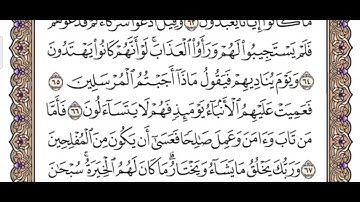 مَا كَانُوٓا۟ إِيَّانَا يَعْبُدُونَ ٦٣ وَقِيلَ ٱدْعُوا۟ شُرَكَآءَكُمْ فَدَعَوْهُمْ
فَلَمْ يَسْتَجِيبُوا۟ لَهُمْ وَرَأَوُا۟ ٱلْعَذَابَ ۚ لَوْ أَنَّهُمْ كَانُوا۟ يَهْتَدُونَ
٦٤ وَيَوْمَ يُنَادِيهِمْ فَيَقُولُ مَاذَآ أَجَبْتُمُ ٱلْمُرْسَلِينَ ٦٥
فَعَمِيَتْ عَلَيْهِمُ ٱلْأَنۢبَآءُ يَوْمَئِذٍ فَهُمْ لَا يَتَسَآءَلُونَ ٦٦ فَأَمَّا
مَن تَابَ وَءَامَنَ وَعَمِلَ صَٰلِحًا فَعَسَىٰٓ أَن يَكُونَ مِنَ ٱلْمُفْلِحِينَ
٦٧ وَرَبُّكَ يَخْلُقُ مَا يَشَآءُ وَيَخْتَارُ ۗ مَا كَانَ لَهُمُ ٱلْخِيَرَةُ ۚ سُبْحَٰنَ